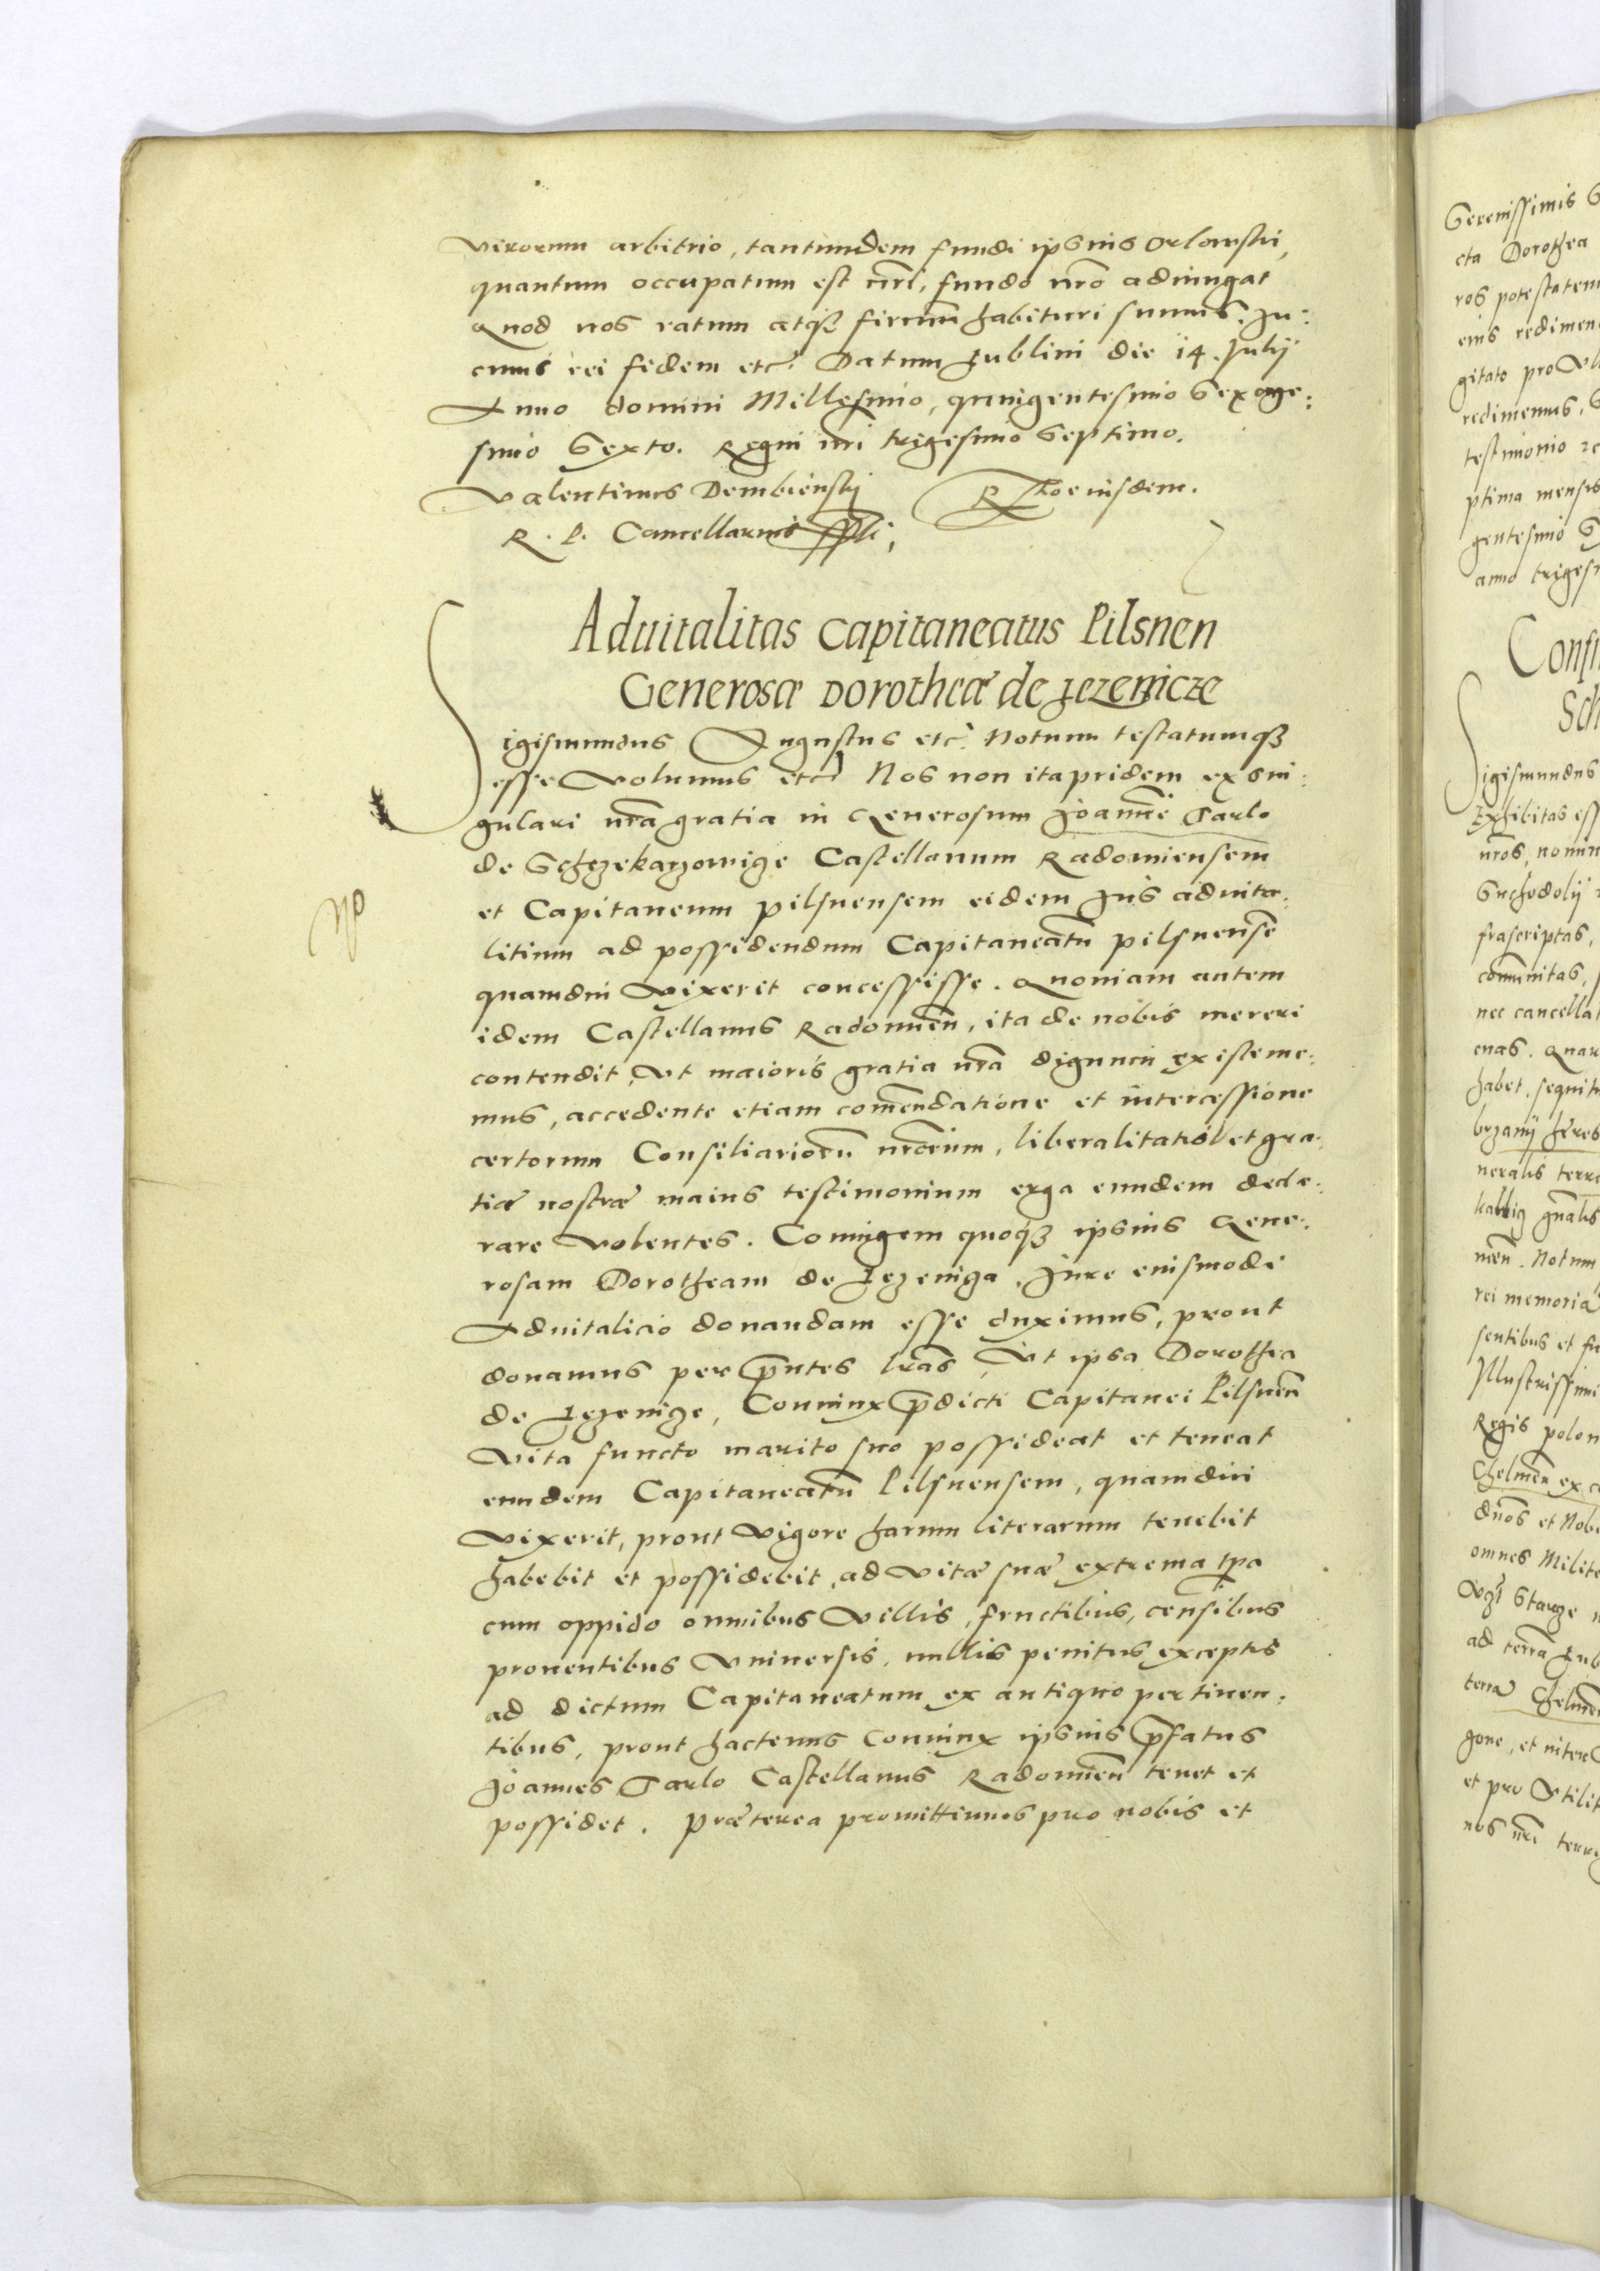 virorum arbitrio, tantundem fundi ipsius Orlowskii,
quantum occupatum est, fundo nro adiungat
Quod nos ratum atq3 firmum habituri sumus. In
cuius rei fidem etc. Datum Lublini die 14. Julij
Anno domini Millesimo, quingentesimo Sexage:
simo Sexto. Regni nri trigesimo Septimo.
Valentinus Dembienskij
R. P. Cancellarius sspt. Rtio eiusdem.
Aduitalitas Capitaneatus Pilsnen
Generosæ Dorotheæ de Jezenicze
Sigismundus Augustus etc. Notum testatumq3
esse Volumus etc. Nos non ita pridem ex sin:
gulari nra gratia in Generosum Joannē Tarlo
de Sczekarzowicze Castellanum Radomiensem
et Capitaneum pilsnensem eidem Jus aduita:
litium ad possidendum Capitaneatū pilsnensē
quamdiu Vixerit concessisse. Quoniam autem
idem Castellanus Radomień, ita de nobis mereri
contendit, Vt maioris gratia nra dignum existeme:
mus, accedente etiam comendatione et intercessione
certorum Consiliariorū nrorum, liberalitatis et gra:
tiæ nostræ maius testimonium erga eundem decla:
rare Volentes. Coniugem quoq3 ipsius Gene:
rosam Dorotheam de Jezenicza, Jure eiusmodi
Aduitalicio donandam esse duximus, prout
donamus per pntes lras, Vt ipsa Dorothea
de Jezenicze, Coniunx pdicti Capitanei Pilsnen
Vita functo marito suo possideat et teneat
eundem Capitaneatū Pilsnensem, quamdiu
Vixerit, prout Vigore harum literarum tenebit
habebit et possidebit, ad Vitæ suæ extrema tpa
cum oppido omnibus Villis, fructibus, censibus
prouentibus Vniuersis, nullis penitus exceptis
ad dictum Capitaneatum ex antiquo pertinen:
tibus, prout hactenus Coniunx ipsius pfatus
Joannes Tarlo Castellanus Radomień tenet et
possidet. Præterea promittimus pro nobis et
Serenissimis
cta Dorothea
ros potestatem
eius redimen
gitato pro
redimemus,
testimonio
ptima mensis
gentesimo
anno triges
Conf
Sch
Sigismundus
Exhibitas ess
nros, nomin
Suchodolij
frascriptas,
comunitas,
nec cancella
enas. Quar
habet. sequit
brzanij heres
neralis terr
gnalis
men. Notum
rei memoria
sentibus et fu
Illustrissimi
Regis polon
Chelmen ex
dnos et Nob
omnes Milite
ad terra Lub
Chelmen
gone, et inter
et pro Vtilit
nos nri terr